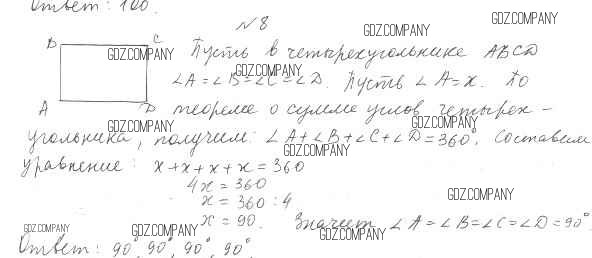 Ответ: 100.
№8
B C Пусть в четырехугольнике ABCD
∠A=∠B=∠C=∠D. Пусть ∠A=x. По
A D теореме о сумме углов четырех-
угольника, получим: ∠A+∠B+∠C+∠D=360°. Составим
уравнение: x+x+x+x=360
4x=360
x=360:4
x=90. Значит ∠A=∠B=∠C=∠D=90°.
Ответ: 90°, 90°, 90°, 90°.
GDZ.COMPANY
GDZ.COMPANY
GDZ.COMPANY
GDZ.COMPANY
GDZ.COMPANY
GDZ.COMPANY
GDZ.COMPANY
GDZ.COMPANY
GDZ.COMPANY
GDZ.COMPANY
GDZ.COMPANY